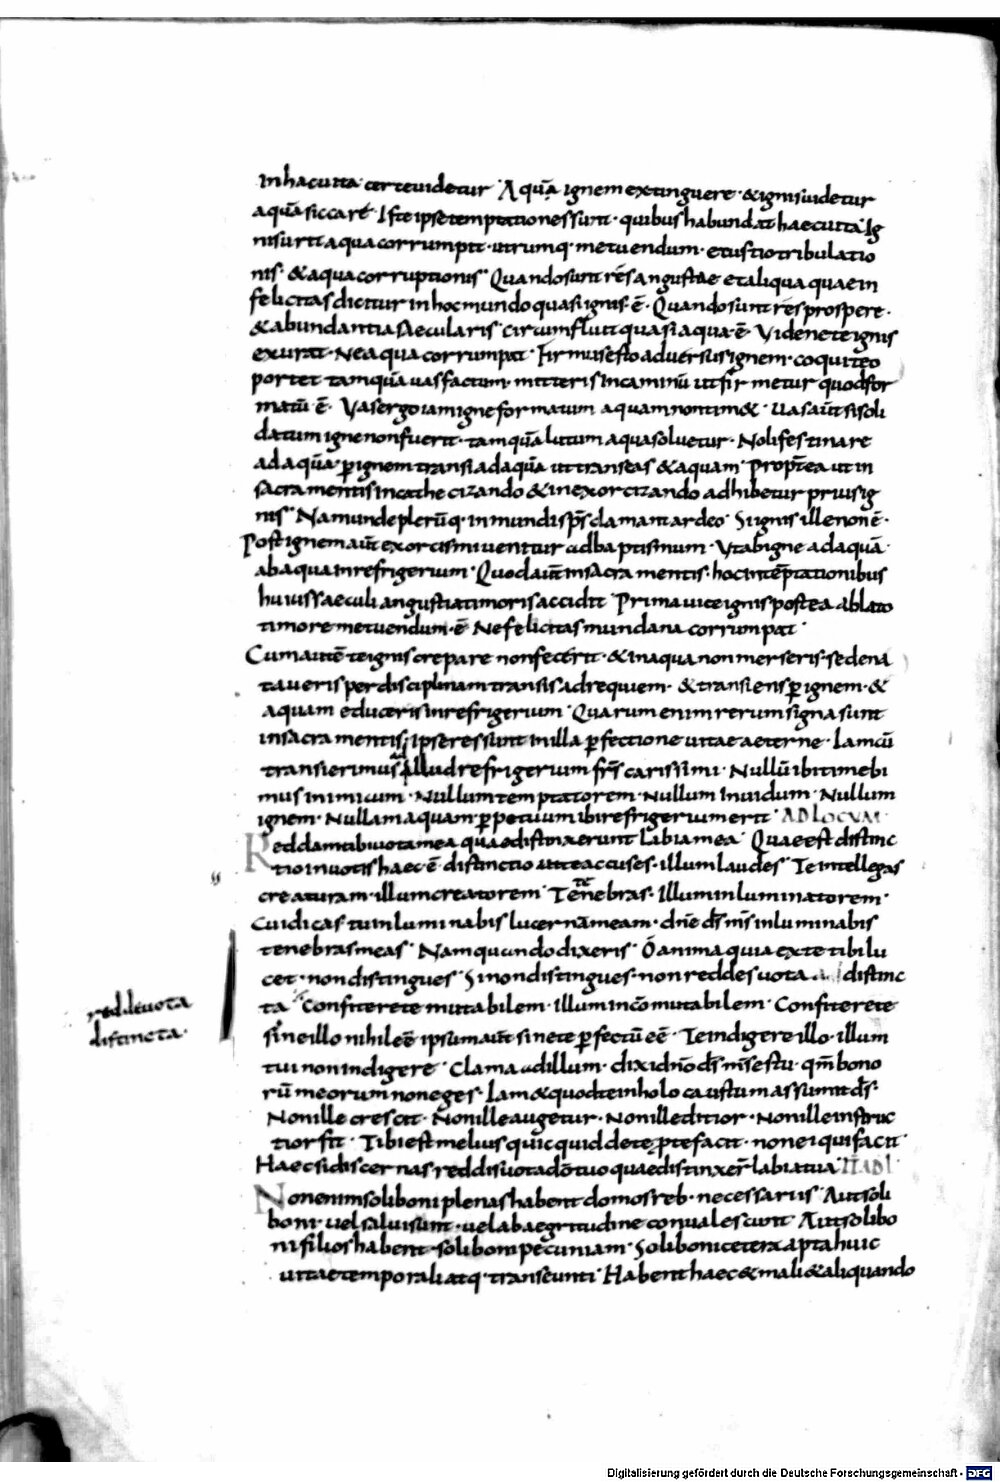 In hac uita certe uidetur · Aquā ignem extinguere · & ignis uidetur
aquā siccare · Iste ipse temptationes sunt · quibus habundat haec uita · Ig
nis urit aqua corrumpit · utrumq· metuendum · et ustio tribulatio
nis · & aqua corruptionis · Quando sunt res angustae et aliqua quae in
felicitas dicitur in hoc mundo quasi ignis · ē · Quando sunt res prospere ·
& abundantia saecularis circumfluit quasi aqua · ē · Vide ne te ignis
exurat · Ne aqua corrumpat · Firmus esto adversus ignem · coqui te o
portet tamquā uas factum · mitteris in caminū ut firmetur quod for
matū ē · Vas ergo iam igne formatum aquam non tim& · Uas aūt si soli
datum igne non fuerit · tamquā lutum aqua soluetur · Noli festinare
ad aquā · p ignem transi ad aquā ut transeas & aquam · Propterea ut in
sacramentis in cathecizando & in exorcizando adhibetur prius ig
nis · Nam unde plerūq· inmundi sps clamant ardeo · Si ignis ille non ē ·
Post ignem aūt exorcismi uenitur ad baptismum · Vt ab igne ad aquā ·
ab aqua in refrigerium · Quod aūt in sacramentis · hoc in tēptationibus
huius saeculi angustia timoris accidit · Prima uice ignis postea ablato
timore metuendum · ē Ne felicitas mundana corrumpat ·
Cum autē te ignis crepare non fecerit · & in aqua non merseris · sed ena
taueris per disciplinam transis ad requiem · & transiens p ignem · &
aquam educeris in refrigerium · Quarum enim rerum signa sunt
in sacramentis · Ipse res sunt in illa pfectione uitae aeterne · Iam cū
transierimus ad illud refrigerium frs carissimi · Nullū ibi timebi
mus inimicum · Nullum temptatorem · Nullum inuidum · Nullum
ignem · Nullam aquam · ppetuum ibi refrigerium erit · AD LOCUM
Reddam tibi uota mea quae distinxerunt labia mea · Quae est distinc
tio in uotis haec ē distinctio ut te accuses · illum laudes · Te intellegas
creaturam · illum creatorem · Te tenebras · Illum inluminatorem ·
Cui dicas · tu inluminabis lucernam meam · dne ds ms inluminabis
tenebras meas · Nam quando dixeris · O anima quia ex te tibi lu
cet · non distingues · Si non distingues · non reddes uota distinc
ta · Confitere te mutabilem · Illum incōmutabilem · Confitere te
sine illo nihil eē ipsum aūt sine te pfectū eē · Te indigere illo · illum
tui non indigere · Clama ad illum · dixi dno ds ms es tu · qm bono
rū meorum non eges · Iam & quod te in holocaustum assumit ds ·
Non ille crescit · Non ille augetur · Non ille ditior · Non ille instruc
tior fit · Tibi est melius quicquid de te pte facit · non ei qui facit ·
Haec si discernas reddis uota do tuo quae distinxer labia tua · IT AD L
Non enim soli boni plenas habent domos reb· necessariis · Aut soli
boni · uel salui sunt · uel ab aegritudine conualescunt · Aut soli bo
ni filios habent · soli boni pecuniam · Soli boni cetera apta huic
uitae temporali atq· transeunti · Habent haec & mali & aliquando
redde uota
distincta ·
Digitalisierung gefördert durch die Deutsche Forschungsgemeinschaft - DFG